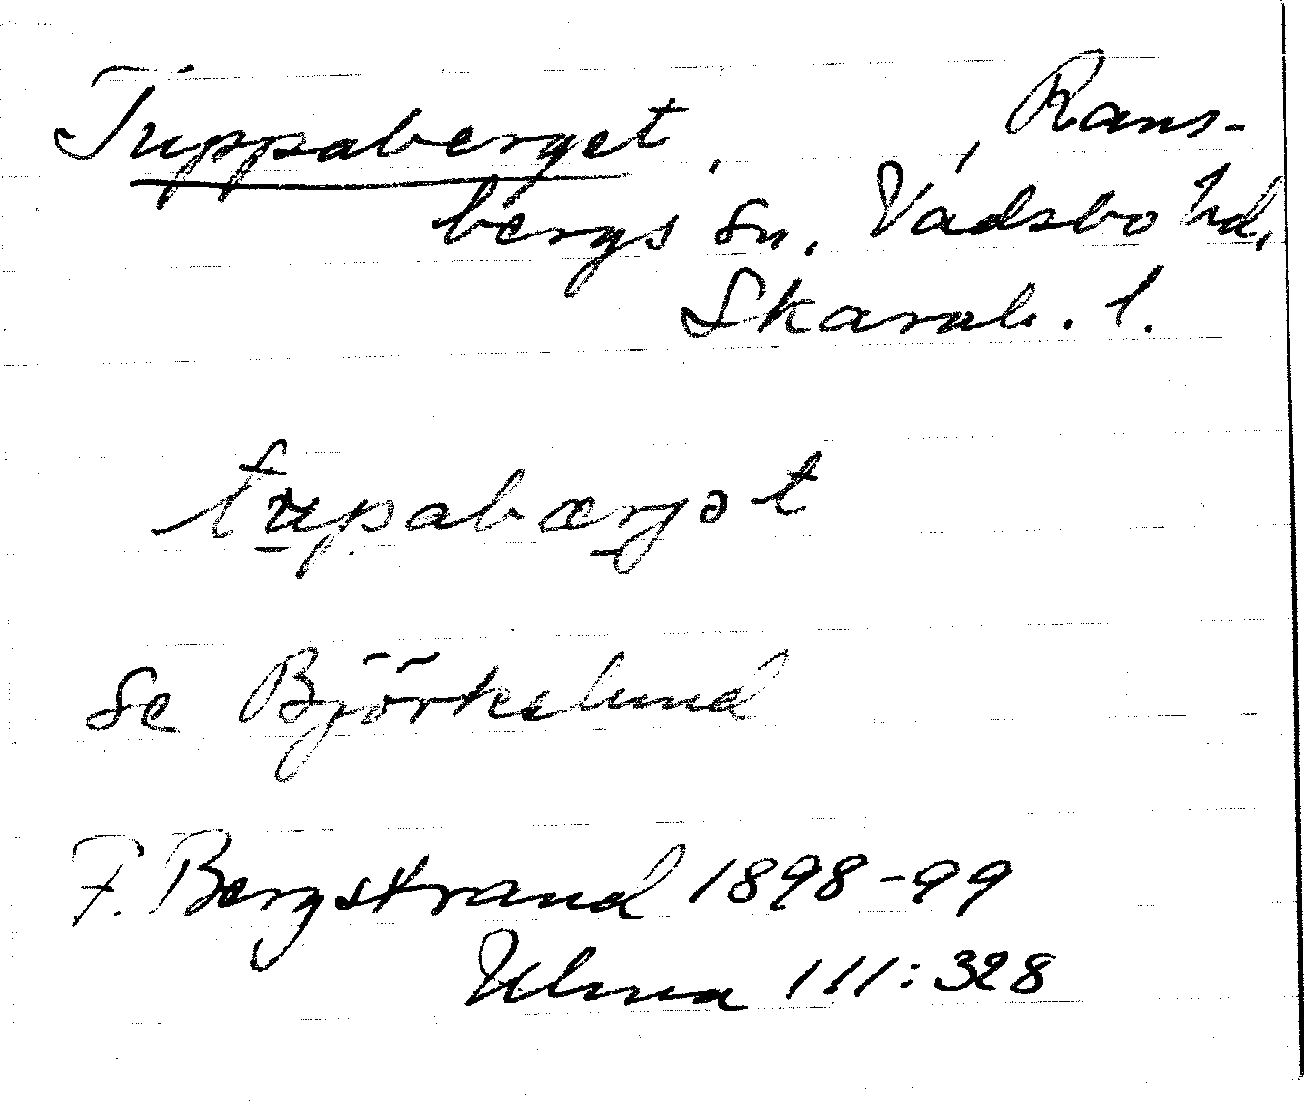 Tuppaberget, Rans-
bergs sn. Vadsbo hd,
Skarab. l.
tupabærjət
Se Björkelund
F. Bergstrand 1898-99
Ulma 111:328